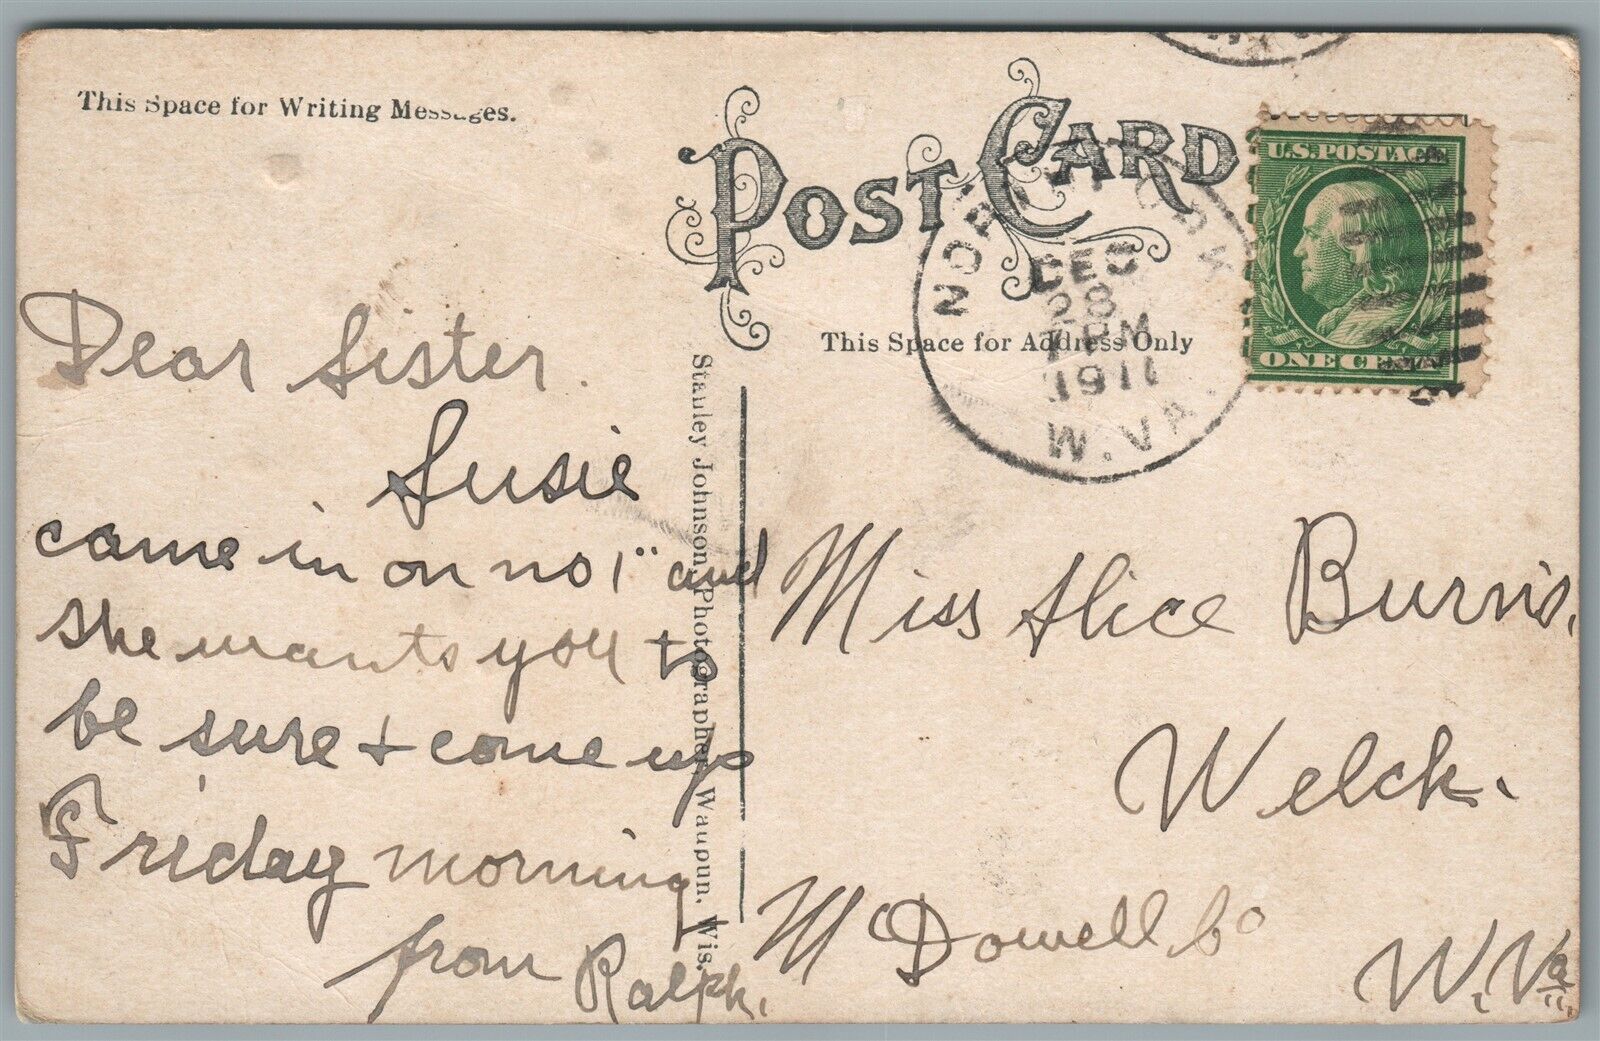 This Space for Writing Messages.
POST CARD
This Space for Address Only
U.S. POSTAGE
ONE CENT
NORTHFORK
DEC
28
PM
1911
W. VA.
Stanley Johnson, Photographer, Waupun, Wis.
Dear Sister.
Susie
came in on no 1" and
she wants you to
be sure + come up
Friday morning
from Ralph.
Miss Alice Burris.
Welch.
McDowell Co
W. Va